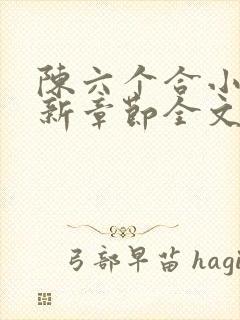 陳六个合小
新章節全文
弓部早苗 hagi